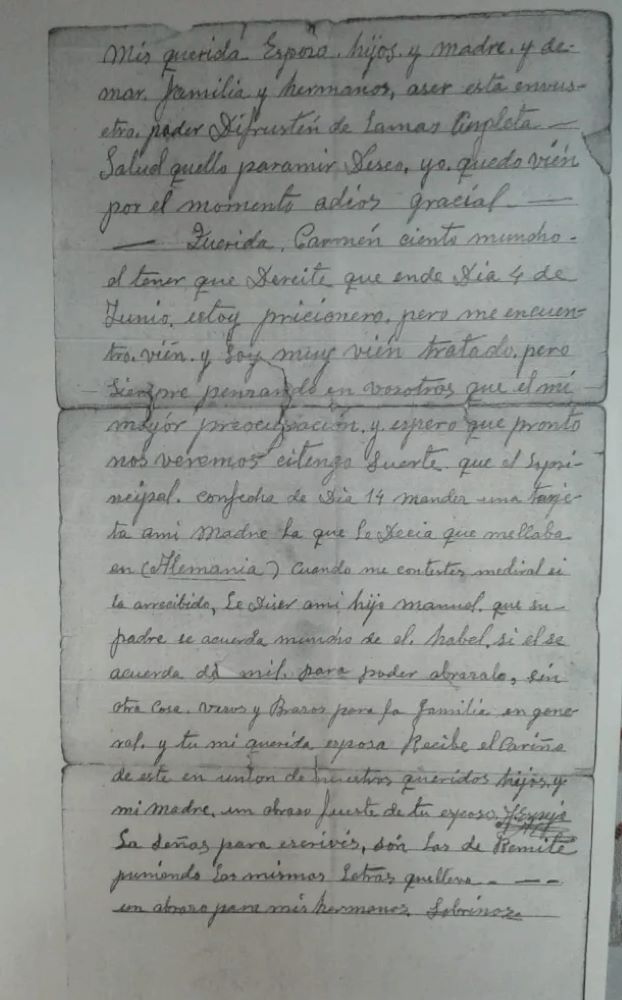 Mis querida Espoza. hijos. y madre. y de-
mar. familia y hermanos, aser esta envus-
etro. poder Difrusten de Lamas Conpleta —
Salud quello paramir Deseo, yo. quedo vién
por el momento adios gracial. —
— Querida. Carmén ciento muncho.
el tener que Dereite que ende Dia 4 de
Junio. estoy pricionero. pero me encuen-
tro. vién. y Soy muy vién tratado. pero
siempre penzando en vosotros que el mi
mayór preocupación. y espero que pronto
nos veremos citengo Suerte. que el
neipal. confecha de Dia 14 mander una tarje-
ta ami Madre La que Le Decia que mellaba
en (Alemania) Cuando me contestes mediral si
la arrecibido, Le Diser ami hijo manuel. que su-
padre se acuerda muncho de el. habel. si el se
acuerda de mil. para poder abrazalo, sin
otra Cosa. Vesos y Brasos para la familia en gene-
ral. y tu mi querida esposa Recibe el Cariño
de este en union de nuestros queridos hijos. y
mi Madre. un abraso fuerte de tu esposo.
La señas para escrivis, són Las de Remite
puniendo Las mismas Letras quelleva — — —
un abraso para mis hermanos. Sobrinos.